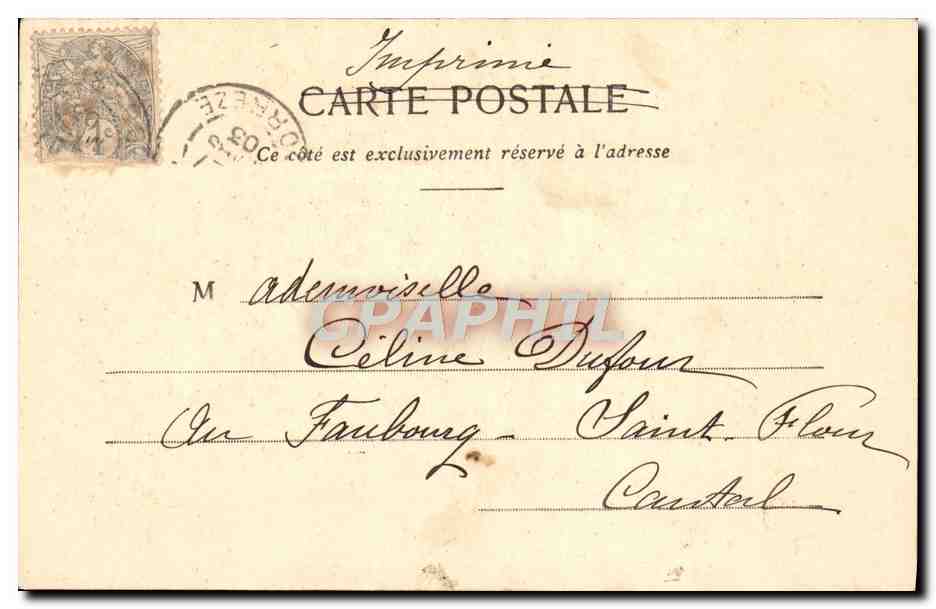 Imprimé
CARTE POSTALE
CORREZE
03
Ce côté est exclusivement réservé à l'adresse
Mademoiselle
CPAPHIL
Céline Dufour
Au Faubourg - Saint-Flour
Cantal